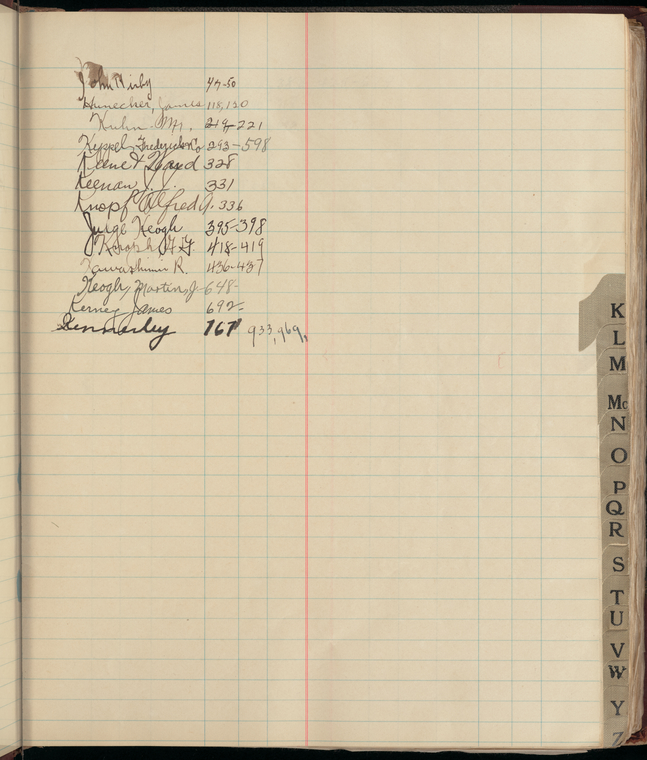 John Kirby 47-50
Hunecher, James 118, 120
Kuhn Mr. 219-221
Keppel, Frederick & Co 293-598
Keene & Ward 328
Keenan J. J. 331
Knopf Alfred A. 336
Judge Keogh 395-398
418-419
Kawashima R. 436-437
Keogh, Martin J- 648-
Kerney James 692-
Kennerley 767 933, 969,
K
L
M
Mc
N
O
P
Q
R
S
T
U
V
W
Y
Z